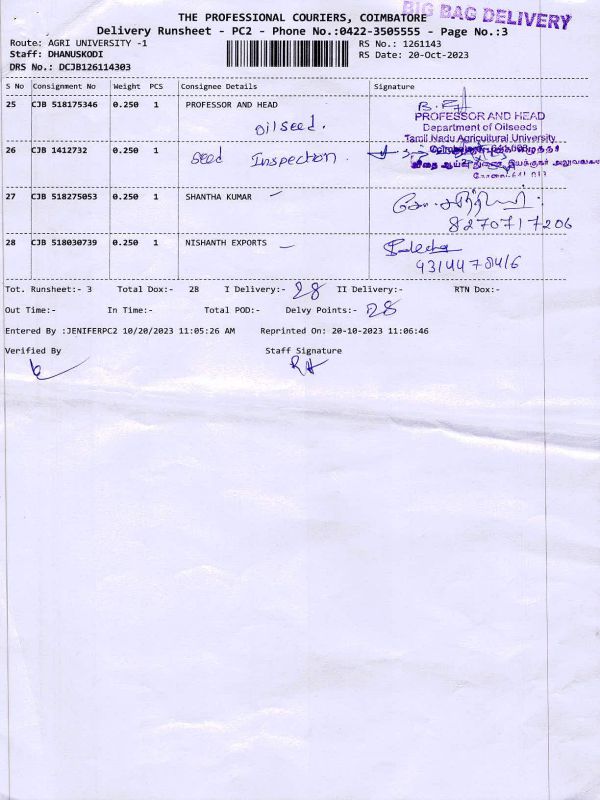 BIG BAG DELIVERY
THE PROFESSIONAL COURIERS, COIMBATORE
Delivery Runsheet - PC2 - Phone No.:0422-3505555 - Page No.:3
Route: AGRI UNIVERSITY -1 RS No.: 1261143
Staff: DHANUSKODI RS Date: 20-Oct-2023
DRS No.: DCJB126114303
S No Consignment No Weight PCS Consignee Details Signature
25 CJB 518175346 0.250 1 PROFESSOR AND HEAD
PROFESSOR AND HEAD
Oilseed. Department of Oilseeds
Tamil Nadu Agricultural University
26 CJB 1412732 0.250 1 Seed Inspection.
27 CJB 518275053 0.250 1 SHANTHA KUMAR
8270717206
28 CJB 518030739 0.250 1 NISHANTH EXPORTS
Tot. Runsheet:- 3 Total Dox:- 28 I Delivery:- 28 II Delivery:- RTN Dox:-
Out Time:- In Time:- Total POD:- Delvy Points:- 28
Entered By :JENIFERPC2 10/20/2023 11:05:26 AM Reprinted On: 20-10-2023 11:06:46
Verified By Staff Signature